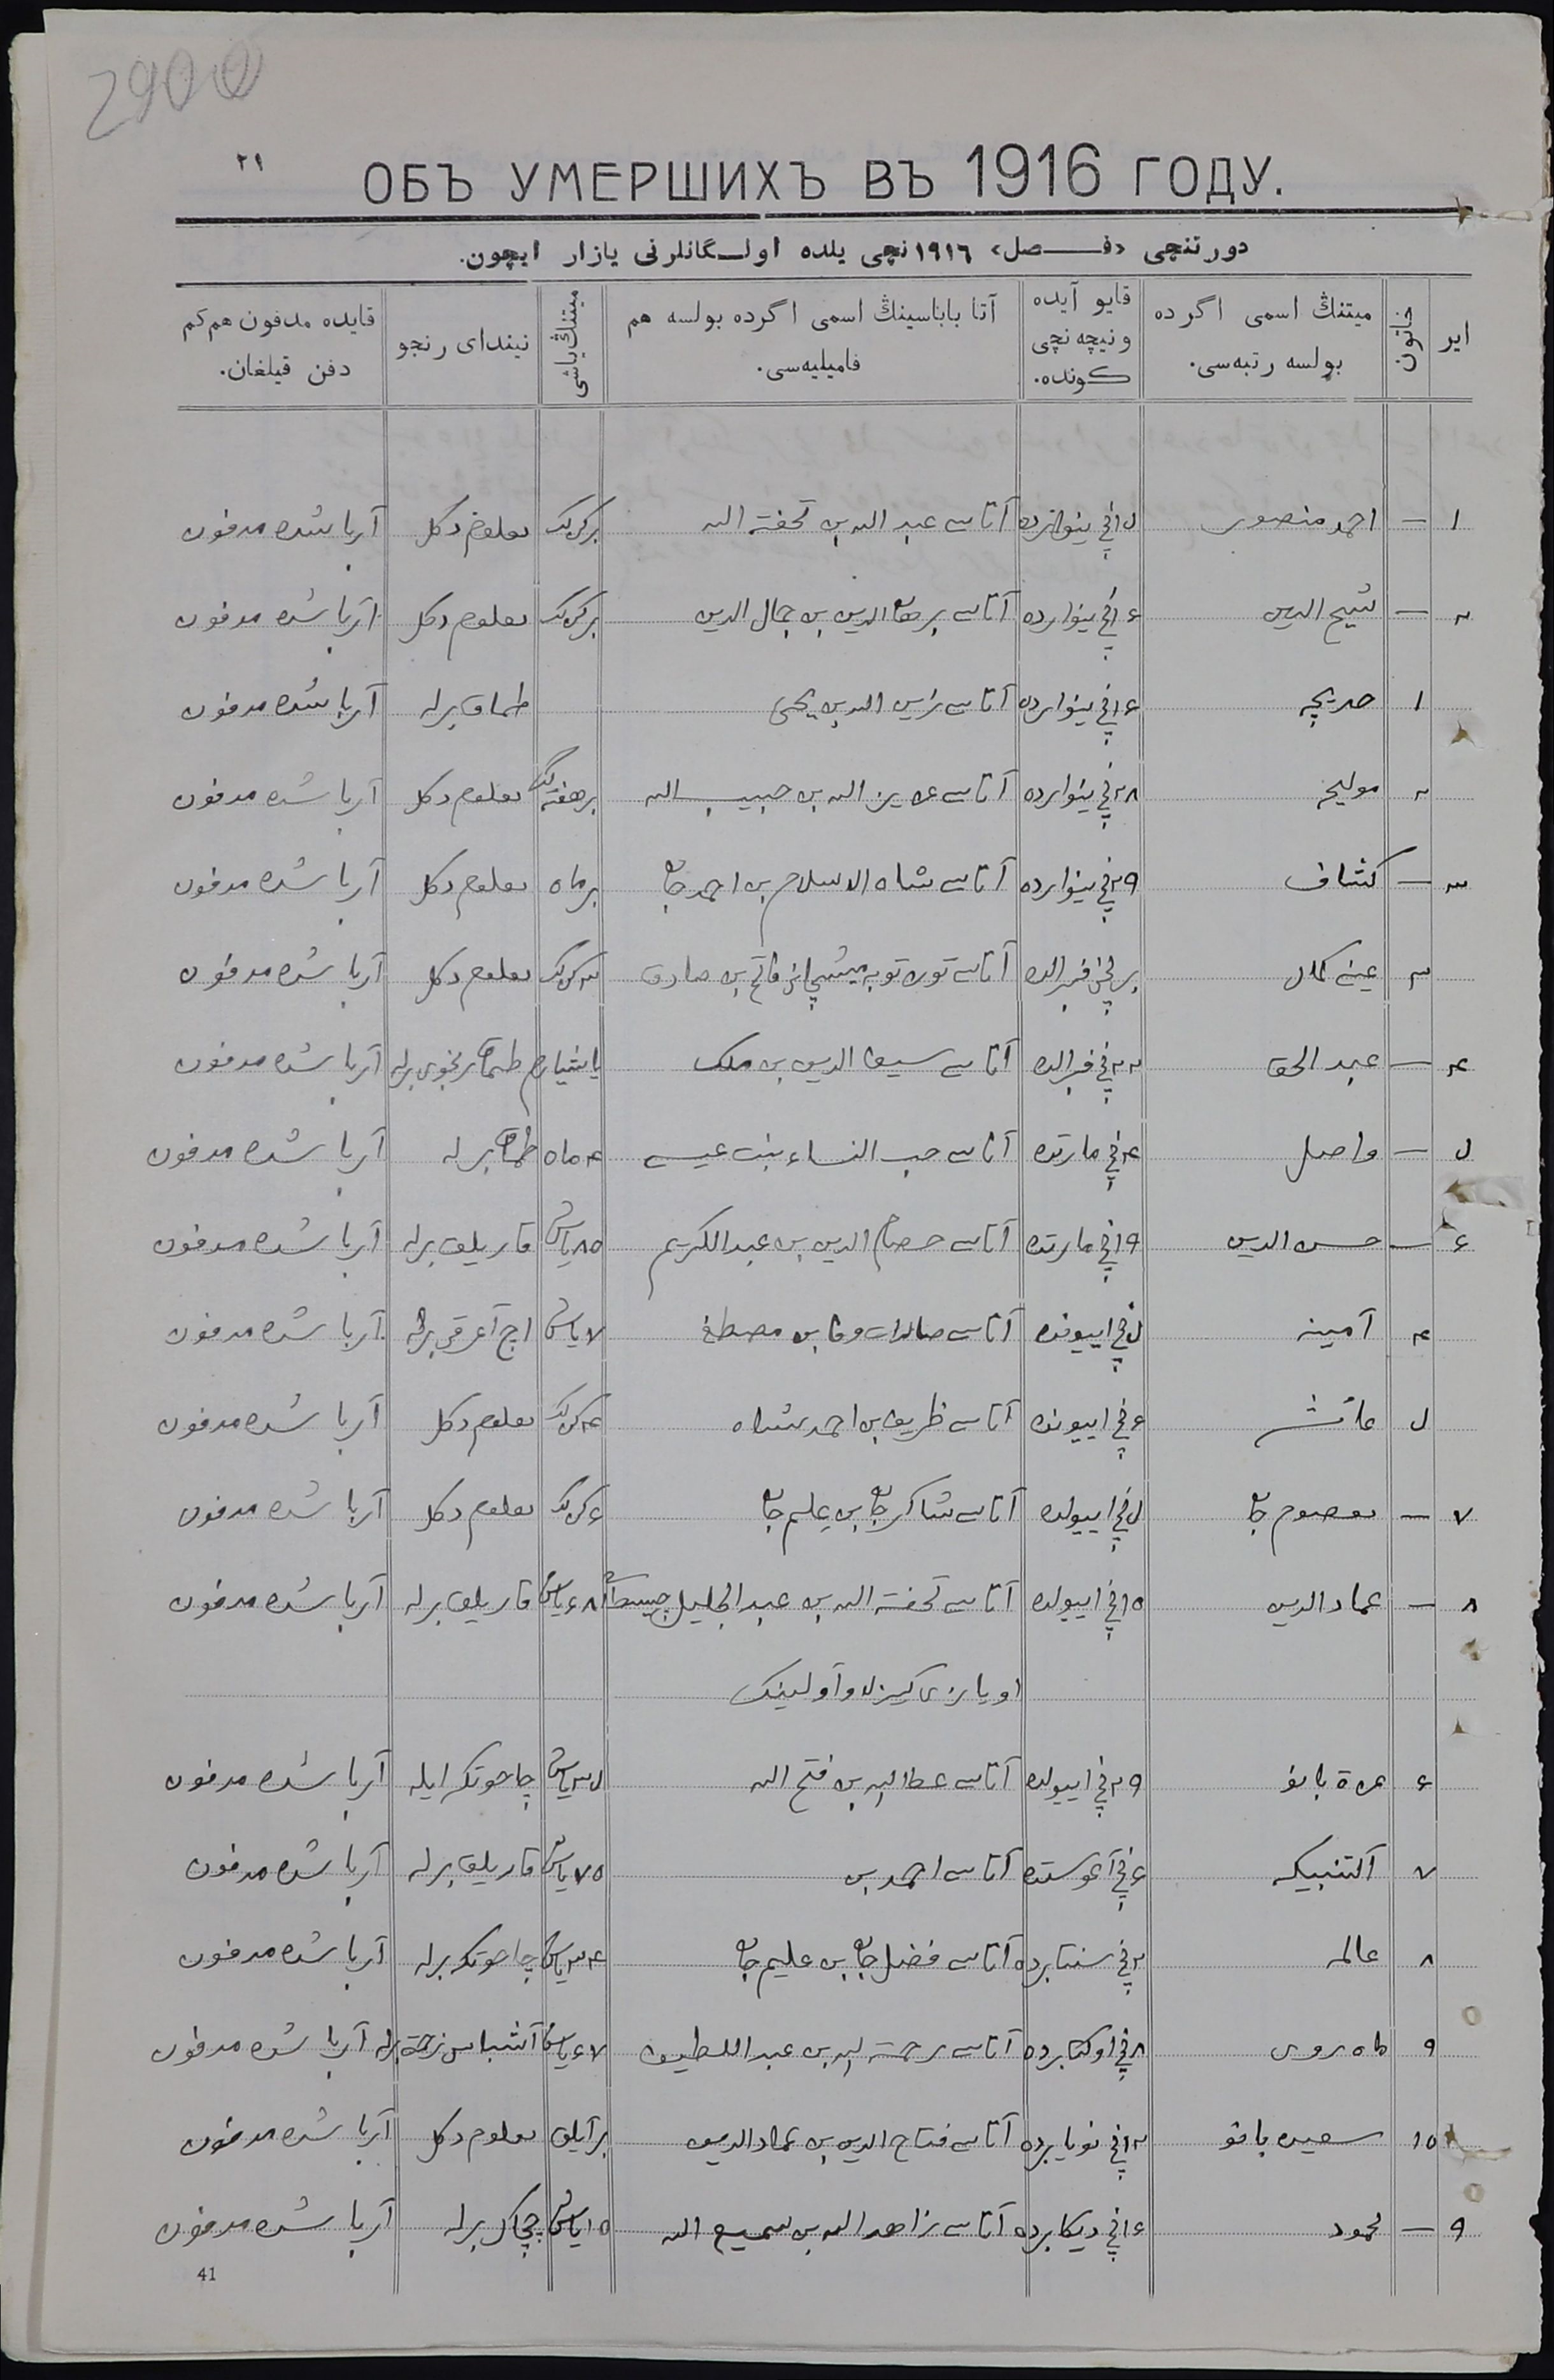 2900
٢١
ОБЪ УМЕРШИХЪ ВЪ 1916 ГОДУ.
دورتنچی «فـــصل» ١٩١٦ نچی یلده اولـگانلرنی یازار ایچون.
ایر
خاتون
میتنڭ اسمی اگرده
بولسه رتبه‌سی.
قایو آیده
و نیچه نچی
کونده.
آتا باباسینڭ اسمی اگرده بولسه هم
فامیلیه‌سی.
میتنڭ یاشی
نیندای رنجو
قایده مدفون هم کم
دفن قیلغان.
١ — احمد منصور ینوارده آتاسی عبد الله بن تحفة الله برکونلک معلوم دکل آریا شنده مدفون
٢ — شیخ الدین ١٦نچی ینوارده آتاسی برهان الدین بن جمال الدین برکونلک معلوم دکل آریا شنده مدفون
١ ١٦نچی ینوارده آتاسی زین الله بن یحیی طماق برله آریا شنده مدفون
٢ مولیحه ٢٨نچی ینوارده آتاسی عزیز الله بن حبیب الله برهفته‌لک معلوم دکل آریا شنده مدفون
٣ — کشاف ٢٩نچی ینوارده آتاسی شاه الاسلام بن احمد جان برماه معلوم دکل آریا شنده مدفون
٣ عین کمال برنچی فبرالده آتاسی بن صادق ٣کونلک معلوم دکل آریا شنده مدفون
٤ — عبد الحق ٢٢نچی فبرالده آتاسی سیف الدین بن ملک یاشیارم طماق رنجوی برله آریا شنده مدفون
٥ — واصل ٤نچی مارتده آتاسی حب النساء بنت عیسی ٤ماه طماق برله آریا شنده مدفون
٦ — حسن الدین ١٩نچی مارتده آتاسی حصام الدین بن عبد الکریم ٨٥یاش قاریلق برله آریا شنده مدفون
٤ آمینه ٥نچی ایيونده آتاسی بن مصطفی ٧یاش اچ آغرقی برله آریا شنده مدفون
٥ عائشه ٦نچی ایيونده آتاسی ظریف بن احمد شاه ٤کونلک معلوم دکل آریا شنده مدفون
٧ — معصوم جان ٥نچی ایيولده آتاسی شاکر جان بن علیم جان ٦کونلک معلوم دکل آریا شنده مدفون
٨ — عماد الدین ١٥نچی ایيولده آتاسی تحفة الله بن عبد الجلیل ٦٨یاش قاریلق برله آریا شنده مدفون
اویازی کیزلاو آولینک
٦ عزة بانو ٢٩نچی ایيولده آتاسی عطا الله بن فتح الله ٣٥یاش چاحوتکه ایله آریا شنده مدفون
٧ آلتنبیکه ٦نچی آغوستده آتاسی احمد بن ٧٥یاش قاریلق برله آریا شنده مدفون
٨ عالمه ٢نچی سنتابرده آتاسی فضل جان بن علیم جان ٣٤یاش چاحوتکه برله آریا شنده مدفون
٩ ماه روی ٨نچی اوکتابرده آتاسی رحمة الله بن عبد اللطیف ٦٧یاش برله آریا شنده مدفون
١٠ سعیده بانو ١٢نچی نویابرده آتاسی فتاح الدین بن عماد الدین برآیلق معلوم دکل آریا شنده مدفون
٩ — محمود ١٦نچی دیکابرده آتاسی زاهد الله بن سمیع الله ١٥یاش چچاک برله آریا شنده مدفون
41